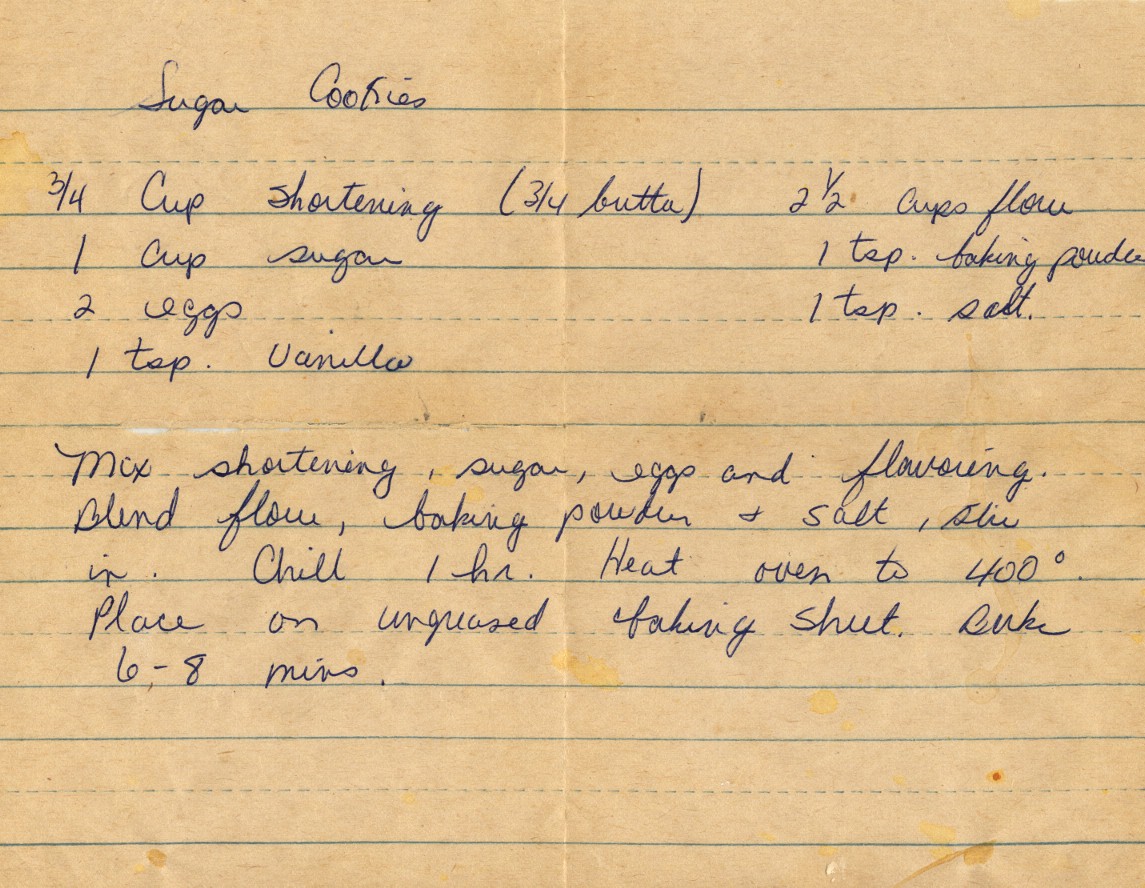 Sugar Cookies
3/4 Cup shortening (3/4 butter) 2 1/2 cups flour
1 cup sugar 1 tsp. baking powder
2 eggs 1 tsp. salt.
1 tsp. Vanilla
Mix shortening, sugar, eggs and flavoring.
Blend flour, baking powder & salt, stir
in. Chill 1 hr. Heat oven to 400°.
Place on ungreased baking sheet. Bake
6-8 mins.